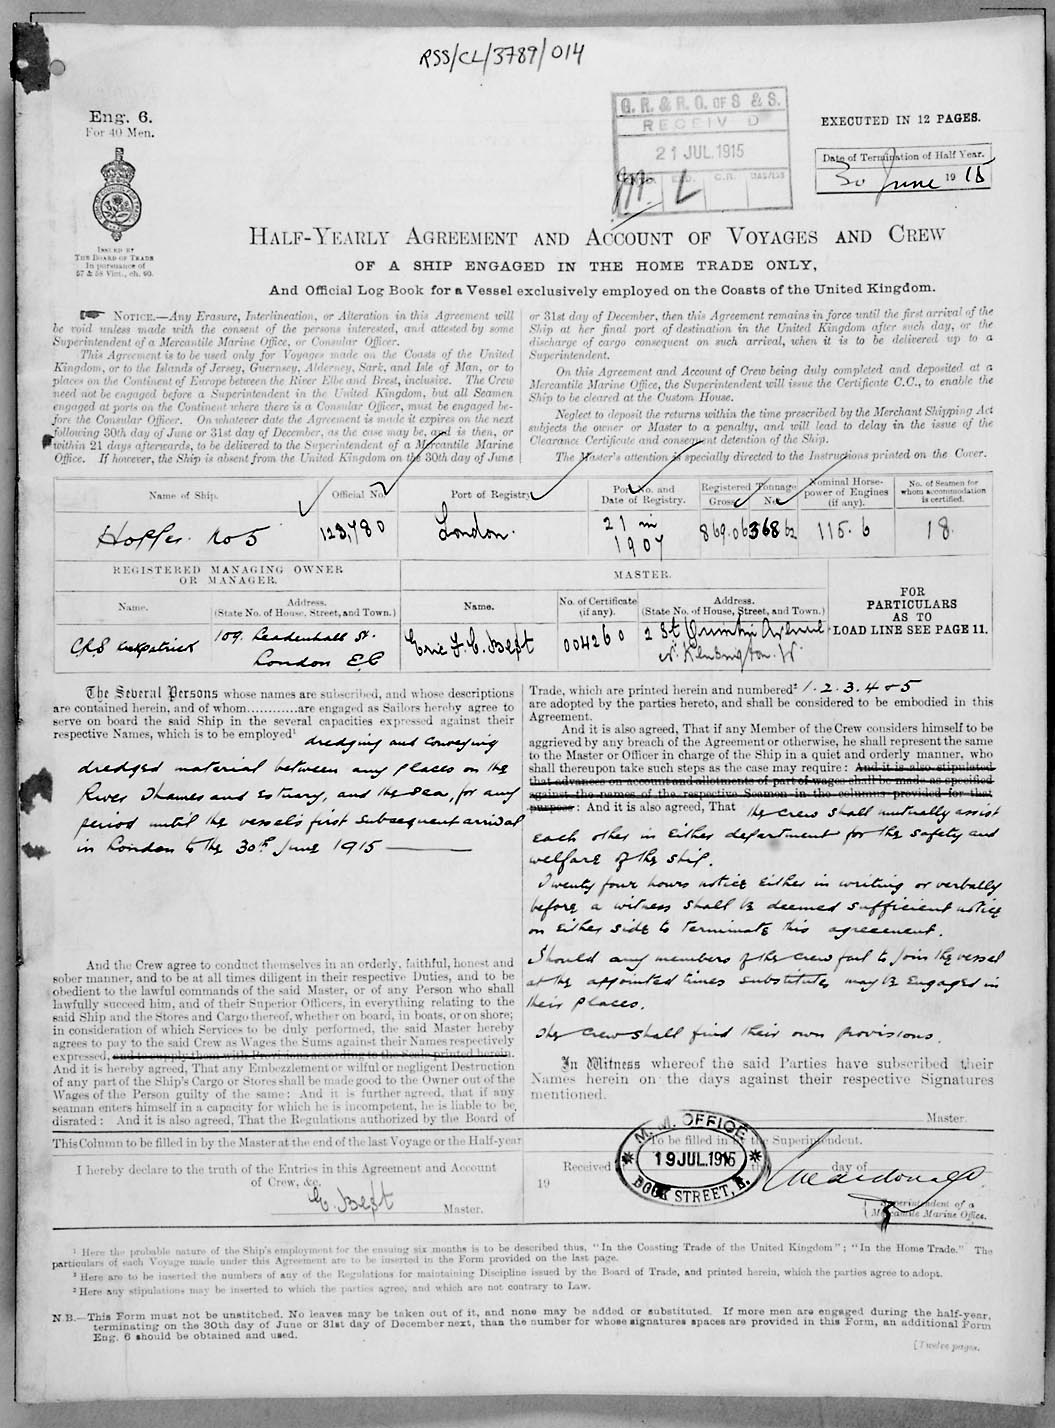 RSS/CL/3789/014
Eng. 6.
For 40 Men.
ISSUED BY
THE BOARD OF TRADE
In pursuance of
57 & 58 Vict., ch. 60.
G. R. & R. O. OF S & S.
RECEIV D
21 JUL. 1915
C. R.
EXECUTED IN 12 PAGES.
Date of Termination of Half Year.
30 June 1915
HALF-YEARLY AGREEMENT AND ACCOUNT OF VOYAGES AND CREW
OF A SHIP ENGAGED IN THE HOME TRADE ONLY,
And Official Log Book for a Vessel exclusively employed on the Coasts of the United Kingdom.
NOTICE.—Any Erasure, Interlineation, or Alteration in this Agreement will
be void unless made with the consent of the persons interested, and attested by some
Superintendent of a Mercantile Marine Office, or Consular Officer.
This Agreement is to be used only for Voyages made on the Coasts of the United
Kingdom, or to the Islands of Jersey, Guernsey, Alderney, Sark, and Isle of Man, or to
places on the Continent of Europe between the River Elbe and Brest, inclusive. The Crew
need not be engaged before a Superintendent in the United Kingdom, but all Seamen
engaged at ports on the Continent where there is a Consular Officer, must be engaged be-
fore the Consular Officer. On whatever date the Agreement is made it expires on the next
following 30th day of June or 31st day of December, as the case may be, and is then, or
within 21 days afterwards, to be delivered to the Superintendent of a Mercantile Marine
Office. If however, the Ship is absent from the United Kingdom on the 30th day of June
or 31st day of December, then this Agreement remains in force until the first arrival of the
Ship at her final port of destination in the United Kingdom after such day, or the
discharge of cargo consequent on such arrival, when it is to be delivered up to a
Superintendent.
On this Agreement and Account of Crew being duly completed and deposited at a
Mercantile Marine Office, the Superintendent will issue the Certificate C.C., to enable the
Ship to be cleared at the Custom House.
Neglect to deposit the returns within the time prescribed by the Merchant Shipping Act
subjects the owner or Master to a penalty, and will lead to delay in the issue of the
Clearance Certificate and consequent detention of the Ship.
The Master's attention is specially directed to the Instructions printed on the Cover.
Name of Ship. Official No. Port of Registry. Port No. and Date of Registry. Registered Tonnage Gross. Net. Nominal Horse-power of Engines (if any). No. of Seamen for whom accommodation is certified.
Hopper No 5 123,780 London. 21 in 1907 869.06 368.62 115.6 18.
REGISTERED MANAGING OWNER
OR MANAGER.
MASTER.
Name. Address. (State No. of House, Street, and Town.) Name. No. of Certificate (if any). Address. (State No. of House, Street, and Town.)
FOR
PARTICULARS
AS TO
LOAD LINE SEE PAGE 11.
Kirkpatrick 109. Leadenhall St. London E.C Eric F. C. Best 004260 2 St Quintin Avenue N. Kensington. W.
The Several Persons whose names are subscribed, and whose descriptions
are contained herein, and of whom............are engaged as Sailors hereby agree to
serve on board the said Ship in the several capacities expressed against their
respective Names, which is to be employed¹ dredging and conveying
dredged material between any places on the
River Thames and Estuary, and the Sea, for any
period until the vessel's first subsequent arrival
in London to the 30th June 1915
And the Crew agree to conduct themselves in an orderly, faithful, honest and
sober manner, and to be at all times diligent in their respective Duties, and to be
obedient to the lawful commands of the said Master, or of any Person who shall
lawfully succeed him, and of their Superior Officers, in everything relating to the
said Ship and the Stores and Cargo thereof, whether on board, in boats, or on shore;
in consideration of which Services to be duly performed, the said Master hereby
agrees to pay to the said Crew as Wages the Sums against their Names respectively
expressed, and to supply them with Provisions according to the Scale printed herein.
And it is hereby agreed, That any Embezzlement or wilful or negligent Destruction
of any part of the Ship's Cargo or Stores shall be made good to the Owner out of the
Wages of the Person guilty of the same: And it is further agreed, that if any
seaman enters himself in a capacity for which he is incompetent, he is liable to be
disrated: And it is also agreed, That the Regulations authorized by the Board of
Trade, which are printed herein and numbered² 1. 2. 3. 4 & 5
are adopted by the parties hereto, and shall be considered to be embodied in this
Agreement.
And it is also agreed, That if any Member of the Crew considers himself to be
aggrieved by any breach of the Agreement or otherwise, he shall represent the same
to the Master or Officer in charge of the Ship in a quiet and orderly manner, who
shall thereupon take such steps as the case may require: And it is also stipulated
that advances on account and allotments of part of wages shall be made as specified
against the names of the respective Seamen in the columns provided for that
purpose: And it is also agreed, That the crew shall mutually assist
each other in either department for the safety and
welfare of the ship.
Twenty four hours notice either in writing or verbally
before a witness shall be deemed sufficient notice
on either side to terminate this agreement.
Should any members of the crew fail to join the vessel
at the appointed times substitutes may be engaged in
their places.
The crew shall find their own provisions.
In Witness whereof the said Parties have subscribed their
Names herein on the days against their respective Signatures
mentioned.
Master.
This Column to be filled in by the Master at the end of the last Voyage or the Half-year
I hereby declare to the truth of the Entries in this Agreement and Account
of Crew, &c.
E. Best Master.
To be filled in by the Superintendent.
Received the day of
19
M. M. OFFICE
19 JUL. 1915
DOCK STREET, E.
Macdonald.
Superintendent of a
Mercantile Marine Office.
¹ Here the probable nature of the Ship's employment for the ensuing six months is to be described thus, "In the Coasting Trade of the United Kingdom"; "In the Home Trade." The
particulars of each Voyage made under this Agreement are to be inserted in the Form provided on the last page.
² Here are to be inserted the numbers of any of the Regulations for maintaining Discipline issued by the Board of Trade, and printed herein, which the parties agree to adopt.
³ Here any stipulations may be inserted to which the parties agree, and which are not contrary to Law.
N.B.—This Form must not be unstitched. No leaves may be taken out of it, and none may be added or substituted. If more men are engaged during the half-year,
terminating on the 30th day of June or 31st day of December next, than the number for whose signatures spaces are provided in this Form, an additional Form
Eng. 6 should be obtained and used.
[Twelve pages.